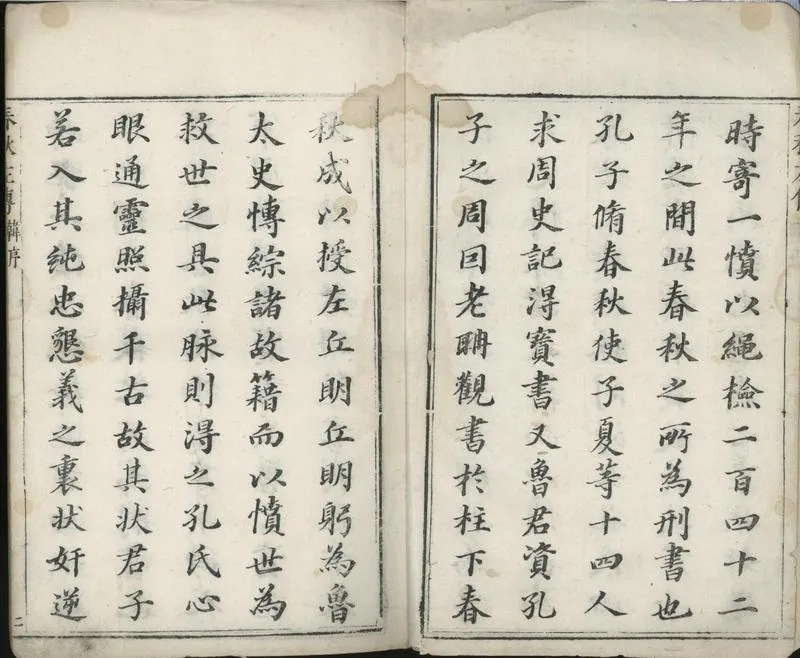 時寄一憤以繩檢二百四十二
年之間此春秋之所為刑書也
孔子脩春秋使子夏等十四人
求周史記得寶書又魯君資孔
子之周回老聃觀書於柱下春
秋成以授左丘明丘明躬為魯
太史慱綜諸故籍而以憤世為
救世之具此脉則得之孔氏心
眼通靈照攝千古故其状君子
若入其純忠懇義之裏状奸逆
春秋左傳韓序
二